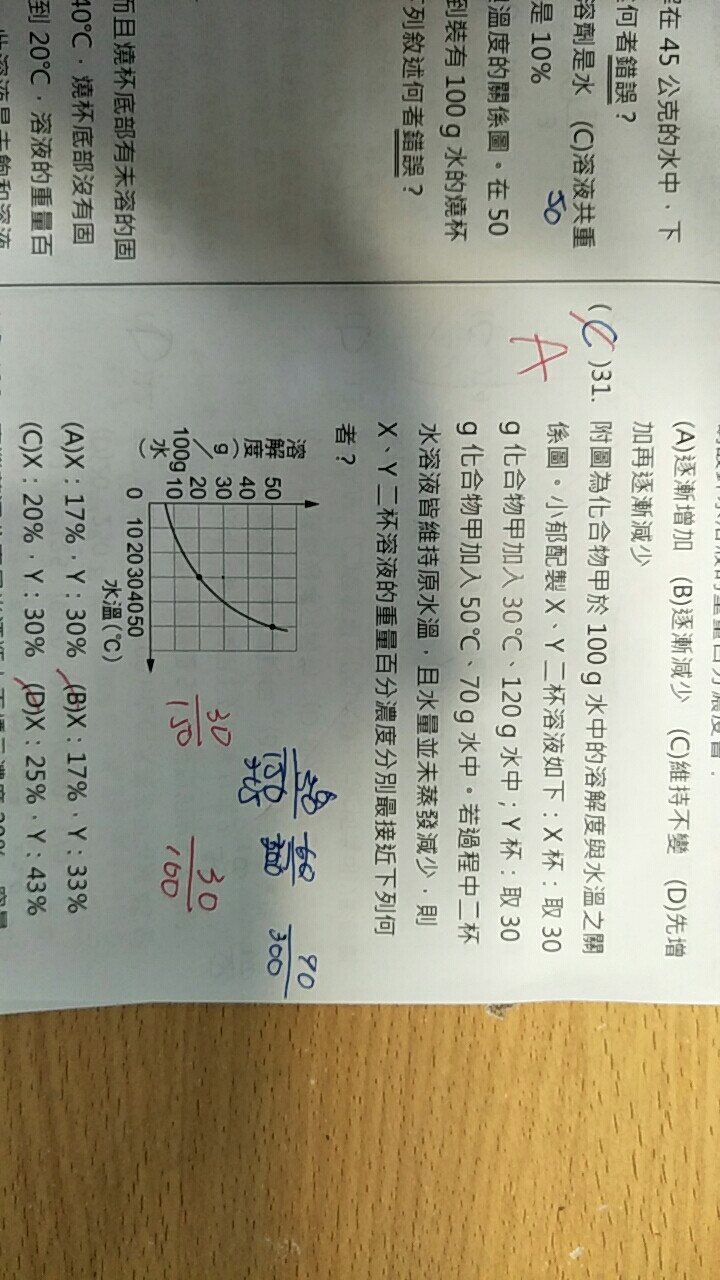 在 45 公克的水中，下
何者錯誤？
溶劑是水 (C)溶液共重
50
是 10%
溫度的關係圖。在 50
到裝有 100 g 水的燒杯
列敘述何者錯誤？
而且燒杯底部有未溶的固
40℃，燒杯底部沒有固
到 20℃，溶液的重量百
(A)逐漸增加 (B)逐漸減少 (C)維持不變 (D)先增
加再逐漸減少
( C )31. 附圖為化合物甲於 100 g 水中的溶解度與水溫之關
A
係圖。小郁配製 X、Y 二杯溶液如下：X 杯：取 30
g 化合物甲加入 30℃、120 g 水中；Y 杯：取 30
g 化合物甲加入 50℃、70 g 水中。若過程中二杯
水溶液皆維持原水溫，且水量並未蒸發減少，則
X、Y 二杯溶液的重量百分濃度分別最接近下列何
者？
溶解度(g/100g水)
50
40
30
20
10
0 10 20 30 40 50
水溫(℃)
90
300
30
150
30
100
(A)X：17%，Y：30% (B)X：17%，Y：33%
(C)X：20%，Y：30% (D)X：25%，Y：43%